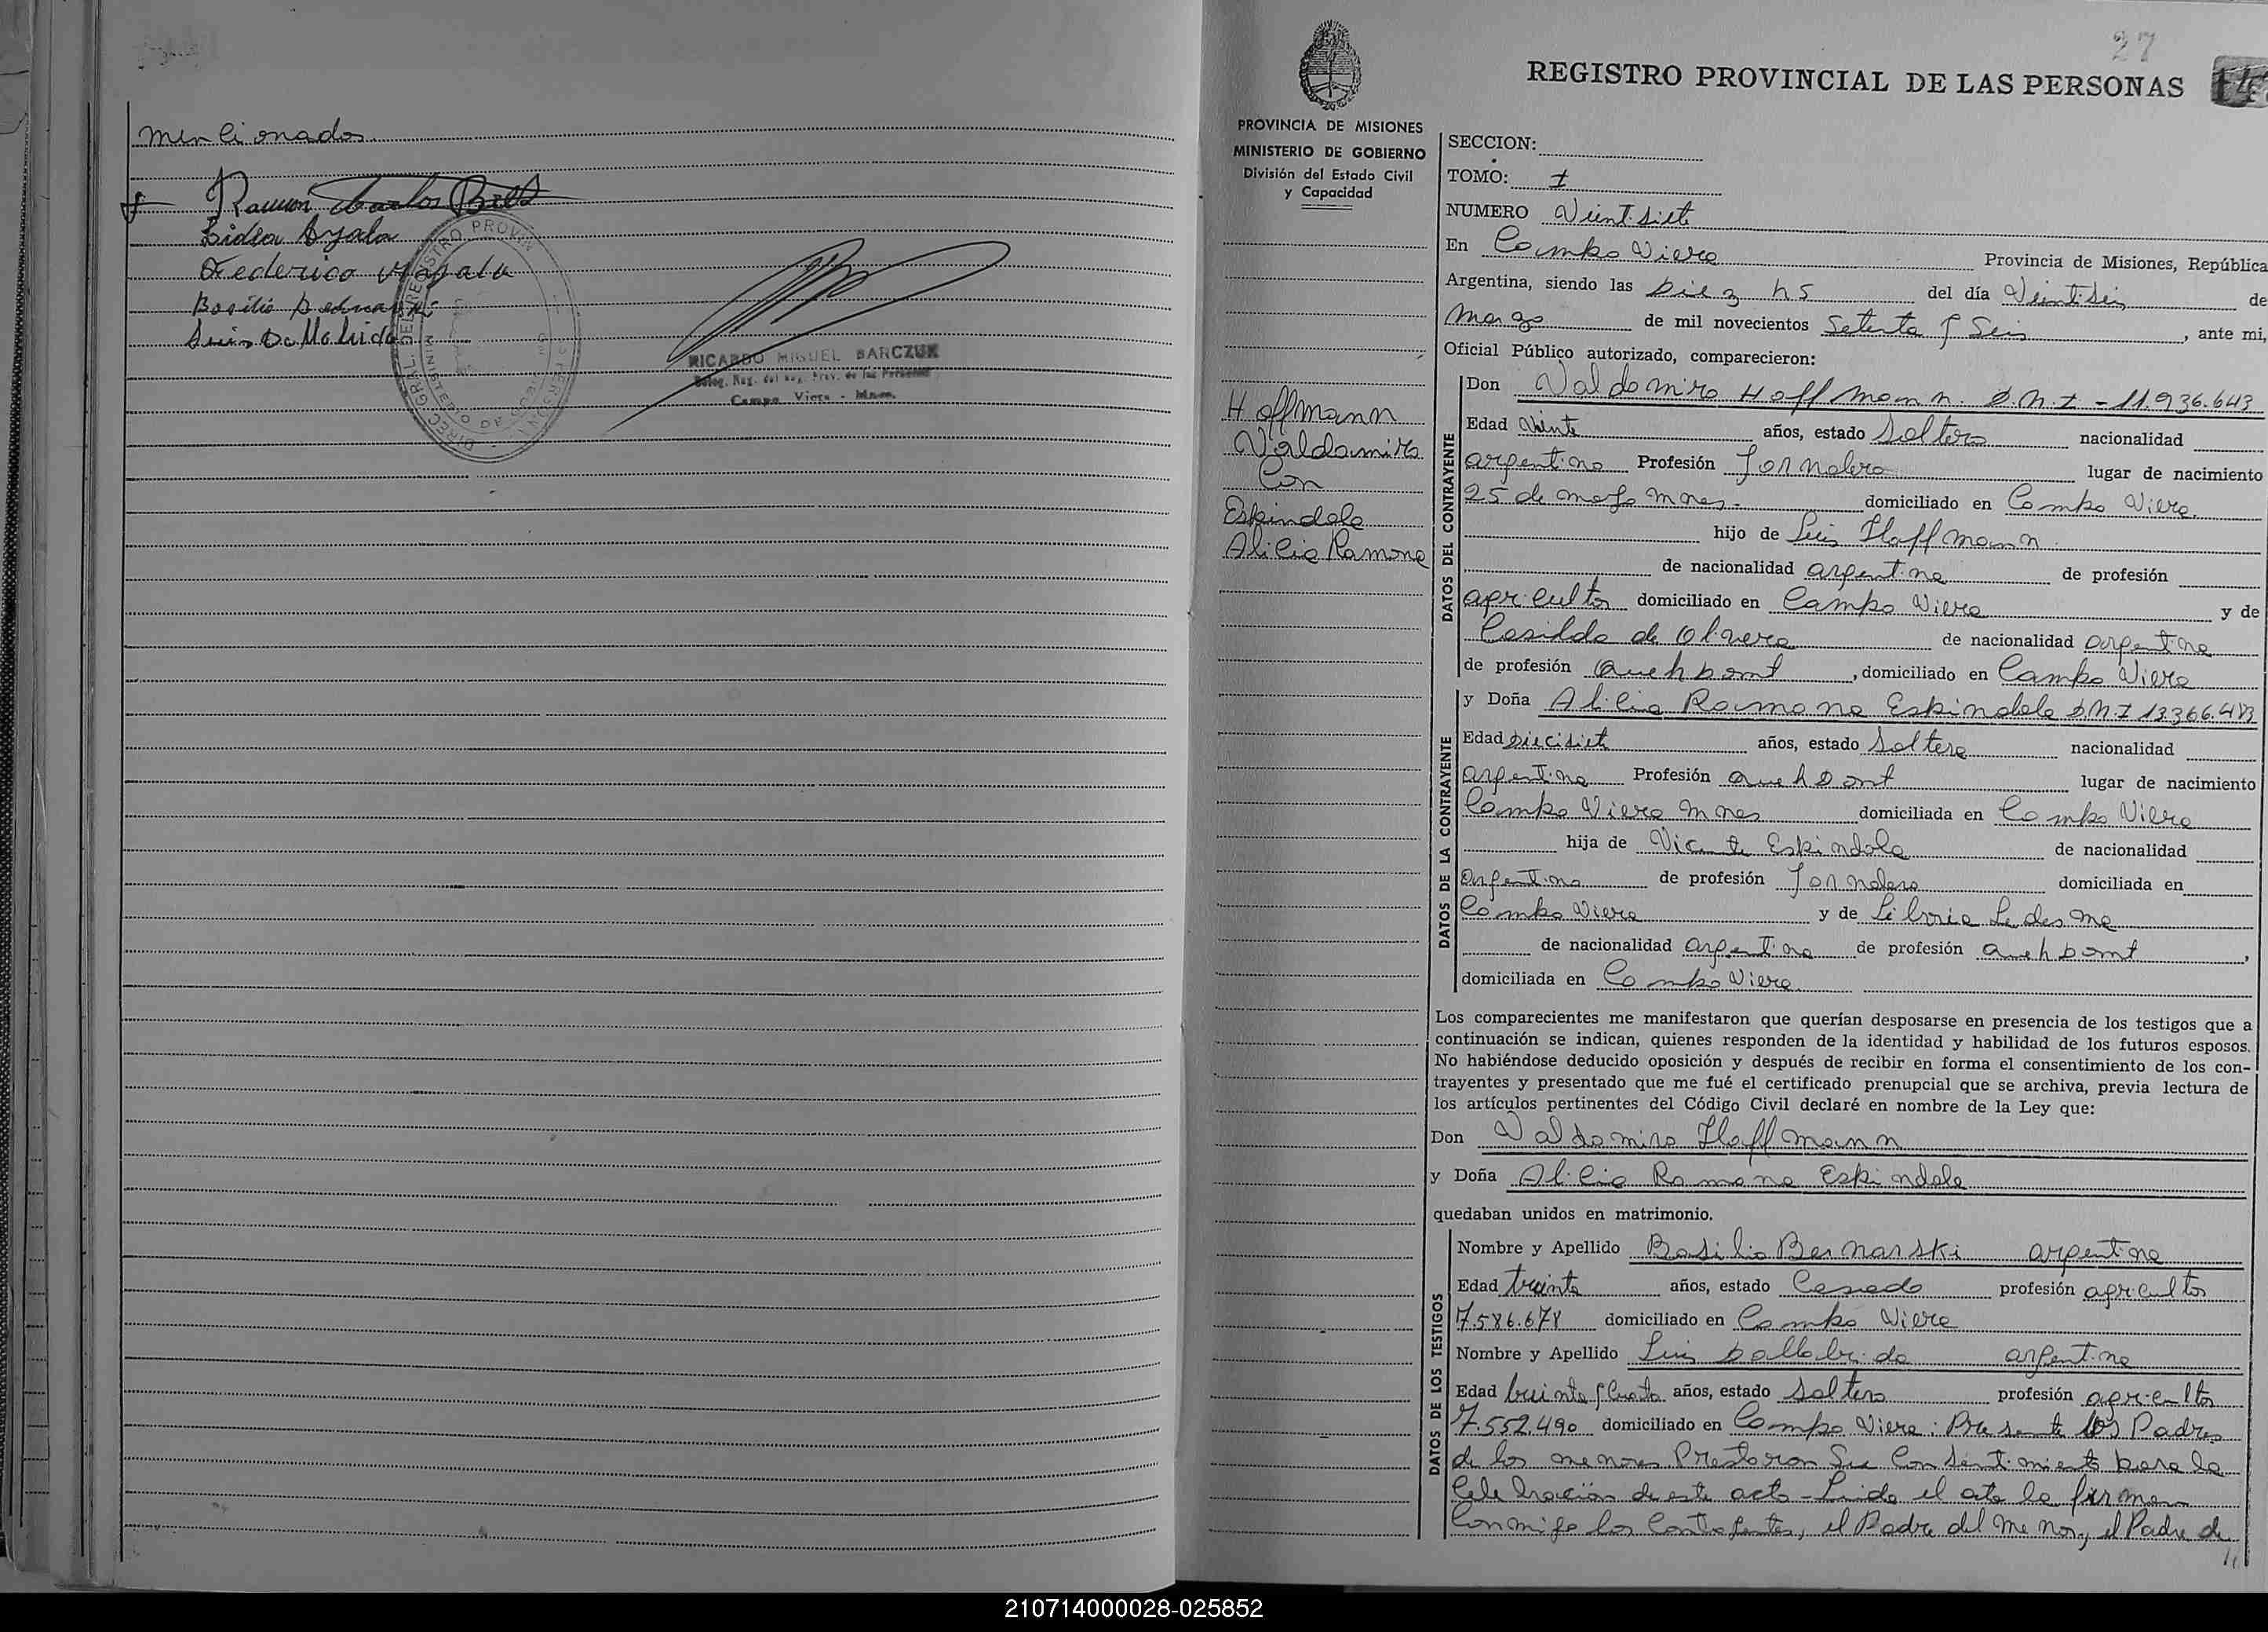 mencionados
Ramon Carlos
Lidia Ayala
Federico
Basilio
Luis
RICARDO MIGUEL BARCZUK
Deleg. Reg. del Reg. Prov. de las Personas
Campo Viera - Mnes.
27
REGISTRO PROVINCIAL DE LAS PERSONAS
PROVINCIA DE MISIONES
MINISTERIO DE GOBIERNO
División del Estado Civil
y Capacidad
Hoffmann
Valdomiro
Con
Espindola
Alicia Ramona
SECCION:
TOMO: I
NUMERO Veintisiete
En Campo Viera Provincia de Misiones, República
Argentina, siendo las Diez hs del día Veintiseis de
Marzo de mil novecientos Setenta y Seis, ante mi,
Oficial Público autorizado, comparecieron:
DATOS DEL CONTRAYENTE
Don Valdomiro Hoffmann. D.N.I - 11.936.643
Edad Veinte años, estado Soltero nacionalidad
argentino Profesión Jornalero lugar de nacimiento
25 de mayo Mnes.- domiciliado en Campo Viera.
hijo de Luis Hoffmann.
de nacionalidad argentina de profesión
agricultor domiciliado en Campo Viera y de
Casilda de Olivera de nacionalidad argentina
de profesión , domiciliado en Campo Viera
DATOS DE LA CONTRAYENTE
y Doña Alicia Ramona Espindola D.N.I 13.366.483
Edad Diecisiete años, estado Soltera nacionalidad
argentina Profesión lugar de nacimiento
Campo Viera Mnes domiciliada en Campo Viera
hija de Vicente Espindola de nacionalidad
argentina de profesión Jornalero domiciliada en
Campo Viera y de Liboria Ledesma
de nacionalidad argentina de profesión ,
domiciliada en Campo Viera
Los comparecientes me manifestaron que querían desposarse en presencia de los testigos que a
continuación se indican, quienes responden de la identidad y habilidad de los futuros esposos.
No habiéndose deducido oposición y después de recibir en forma el consentimiento de los con-
trayentes y presentado que me fué el certificado prenupcial que se archiva, previa lectura de
los artículos pertinentes del Código Civil declaré en nombre de la Ley que:
Don Valdomiro Hoffmann
y Doña Alicia Ramona Espindola
quedaban unidos en matrimonio.
DATOS DE LOS TESTIGOS
Nombre y Apellido Basilio Bernarski argentino
Edad treinta años, estado Casado profesión agricultor
7.586.678 domiciliado en Campo Viera
Nombre y Apellido Luis Dallabrida argentino
Edad treinta y Cuatro años, estado Soltero profesión agricultor
7.552.490 domiciliado en Campo Viera: Presente los Padres
de los menores Prestaron Su Consentimiento para la
Celebración de este acto - Leida el acta la firman
Conmigo los Contrayentes, el Padre del menor, el Padre de
210714000028-025852